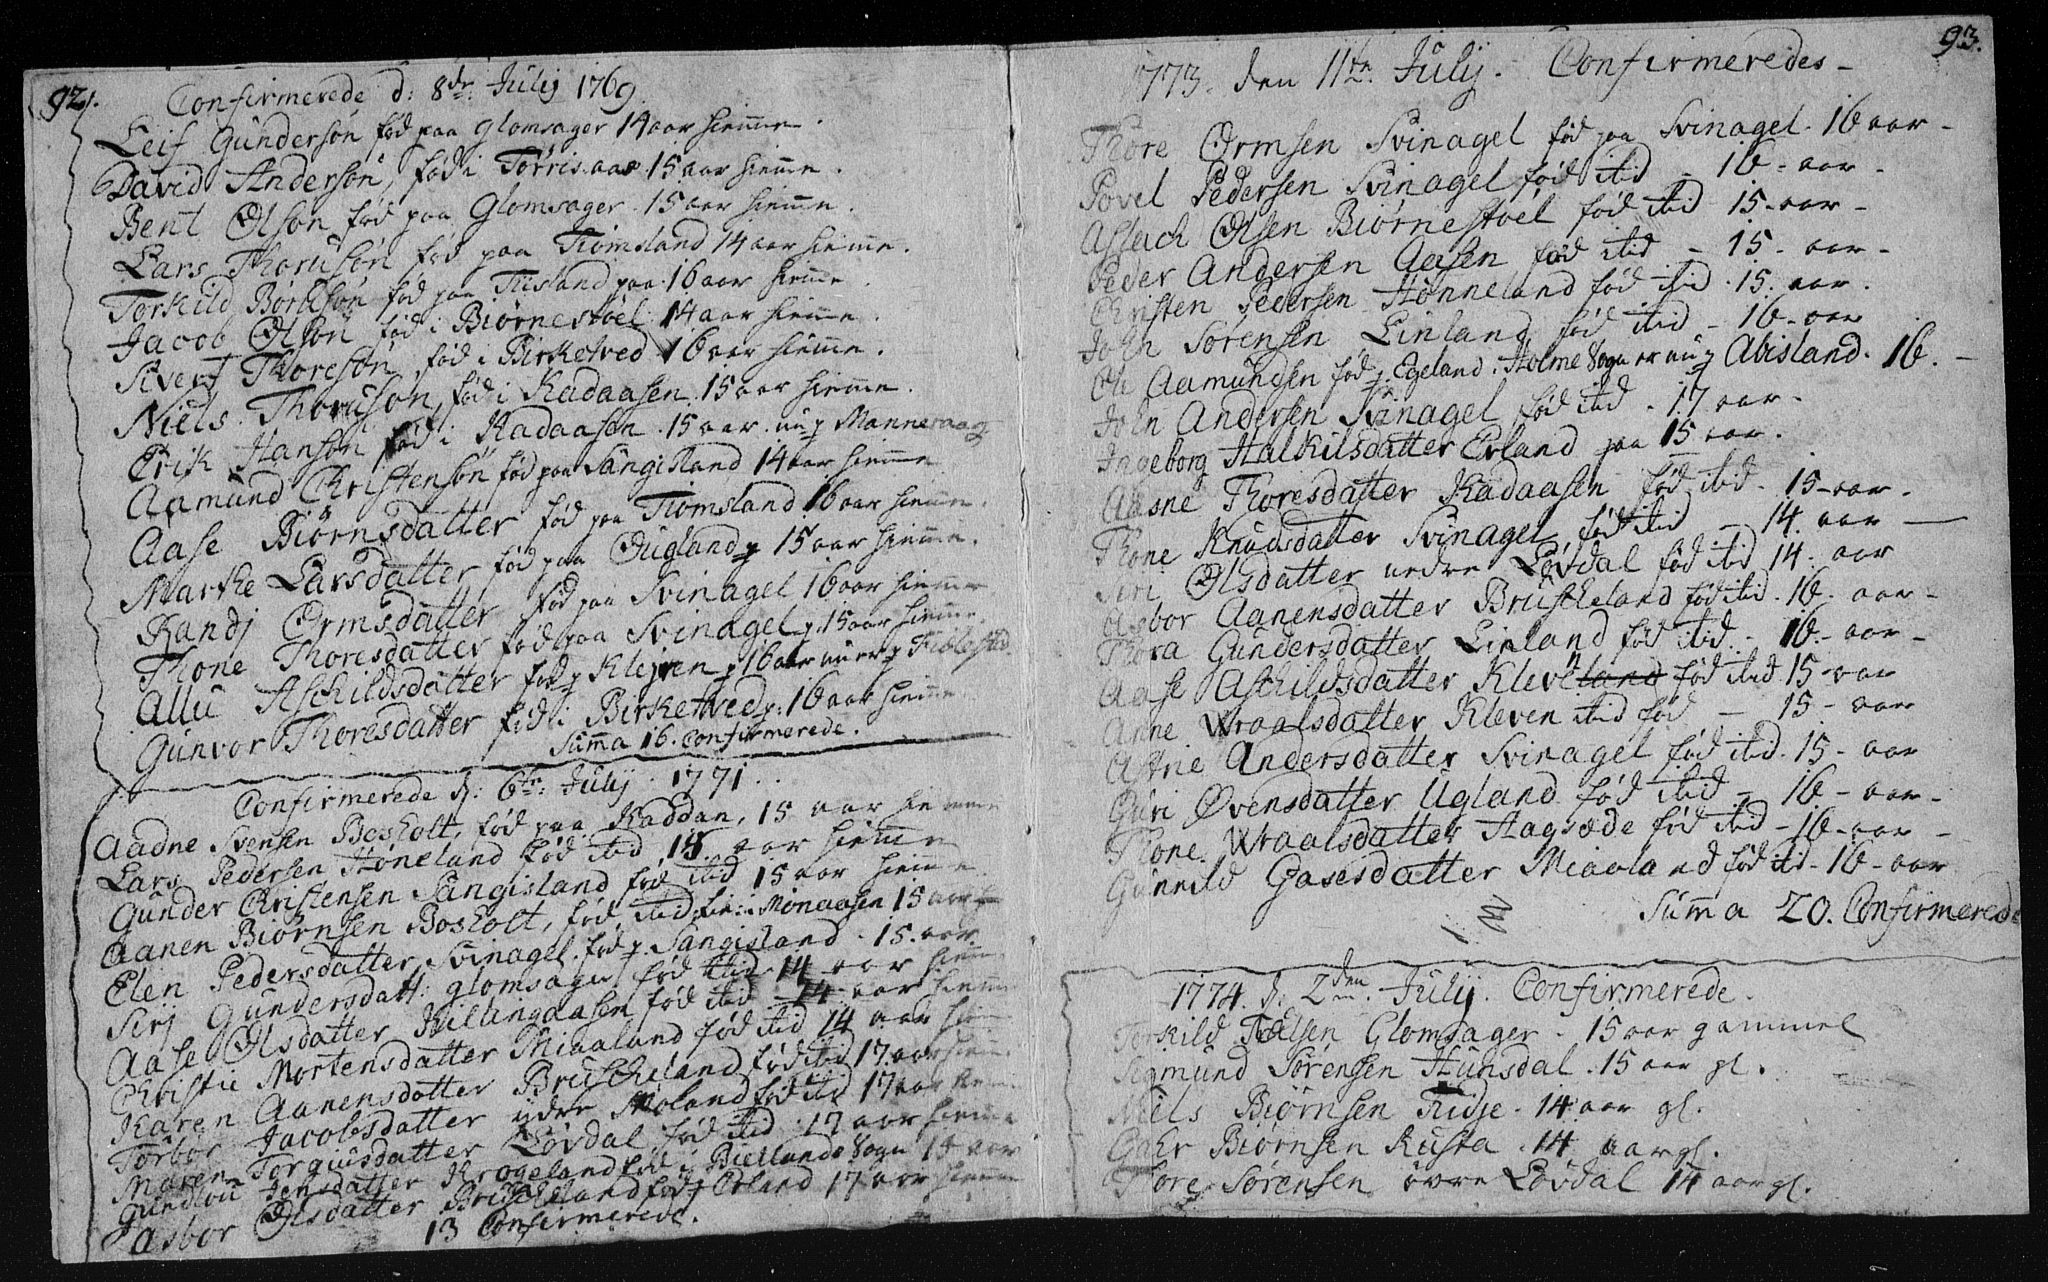 92.
Confirmerede d: 8de Julij 1769.
Leif Gunderson fød paa Glomsager 14 aar hiemme.
David Anderson, fød i Torrisaas 15 aar hiemme.
Bent Olson fød paa Glomsager. 15 aar hiemme.
Lars Thoruson fød paa Tiomsland 14 aar hiemme.
Torkild Børuson fød paa Tiisland paa 16 aar hiemme.
Jacob Olson fød i Biørnestøel 14 aar hiemme.
Sivert Thoreson, fød i Birketved 16 aar hiemme.
Niels Thoruson, fød i Kadaasen 15 aar hiemme.
Erik Hanson fød i Kadaasen. 15 aar. nu p Manneraag
Aamund Christenson fød paa Sangisland 14 aar hiemme
Aase Biørnsdatter fød paa Tiomsland 16 aar hiemme.
Marthe Larsdatter fød paa Øugland p 15 aar hiemme.
Randj Ormsdatter fød paa Svinagel 16 aar hiemme
Thone Thoresdatter fød paa Svinagel p. 15 aar hiemme.
Allu Aschildsdatter fød p Klejven p 16 aar nu er p Fiblestød.
Gunvor Thoresdatter fød i Birketved p: 16 aar hiemme
Summa 16. Confirmerede.
Confirmerede d: 6te Julij 1771.
Aadne Svensen Bosholt, fød paa Raddan, 15 aar hiemme
Lars Pedersen Høneland fød ibid 15 aar hiemme
Gunder Christensen Sangisland fød ibid 15 aar hieme
Aanen Biørnsen Bosholt, fød ibid Monaasen 15 aar
Elen Pedersdatter Svinagel. fød p Sangisland. 15. aar.
Sirj Gundersdatt: glomsager fød ibid 14 aar hiem
Aase Olsdatter Killingdasen fød ibid 14 aar hiemme
Christie Mortensdatter Miaaland fød ibid 14 aar hiem
Karen Aanensdatter Bruscheland fød ibid 17. aar hiem
Torbor Jacobsdatter ydre Møland fød ibid 17 aar hiem
Maren Torgiusdatter Løvdal fød ibid. 17 aar hiemme
Gundlou Jensdatter Krogeland fød i Biellands Sogn 15 aar
Asbor Olsdatter Bruscheland fød p Erland 17 aar hiemme
13 Confirmerede.
93.
1773. den 11te Julij. Confirmeredes -
Thore Ormsen Svinagel fød paa Svinagel. 16 aar -
Povel Pedersen Svinagel fød ibid - 16 - aar -
Aslach Olsen Biørnestoel fød ibid 15 - aar -
Peder Andersen Aasen fød ibid - 15 - aar -
Christen Pedersen Hønneland fød ibid. 15. aar.
John Sørensen Linland fød ibid - 16 - aar
Ole Aamundsen fød p. Egeland i Holme Sogn er nu p Abisland. 16. -
John Andersen Svinagel fød ibid. 17 aar -
Ingeborg Halkilsdatter Erland paa 15 aar.
Aasne Thoresdatter Kadaasen fød ibid. 15 - aar.
Thone Knudsdatter Svinagel fød ibid - 14. aar
Siri Olsdatter nedre Løvdal fød ibid 14. aar
Asbor Aanensdatter Bruscheland fød ibid. 16. aar -
Thora Gundersdatter Linland fød ibid. 16. - aar -
Aase Aschildsdatter Kleveland fød ibid 15 - aar
Anne Wraalsdatter Kleven ibid fød - 15 - aar
Astrie Andersdatter Svinagel fød ibid. 15 - aar
Guri Øvensdatter Ugland fød ibid - 16 - aar -
Thone Wraalsdatter Hagsæde fød ibid - 16 - aar -
Gunnild Gasesdatter Miaaland fød ibid - 16 - aar
Summa 20. Confirmerede
1774. d. 2den Julij. Confirmerede.
Torkild Tølsen Glomsager - 15 aar gammel
Sigmund Sørensen Hunsdal. 15 aar gl.
Niels Biørnsen Tidje. 14 aar gl.
Gahr Biørnsen Rusta. 14 aar gl.
Thore Sørensen øvre Løvdal 14 aar gl.